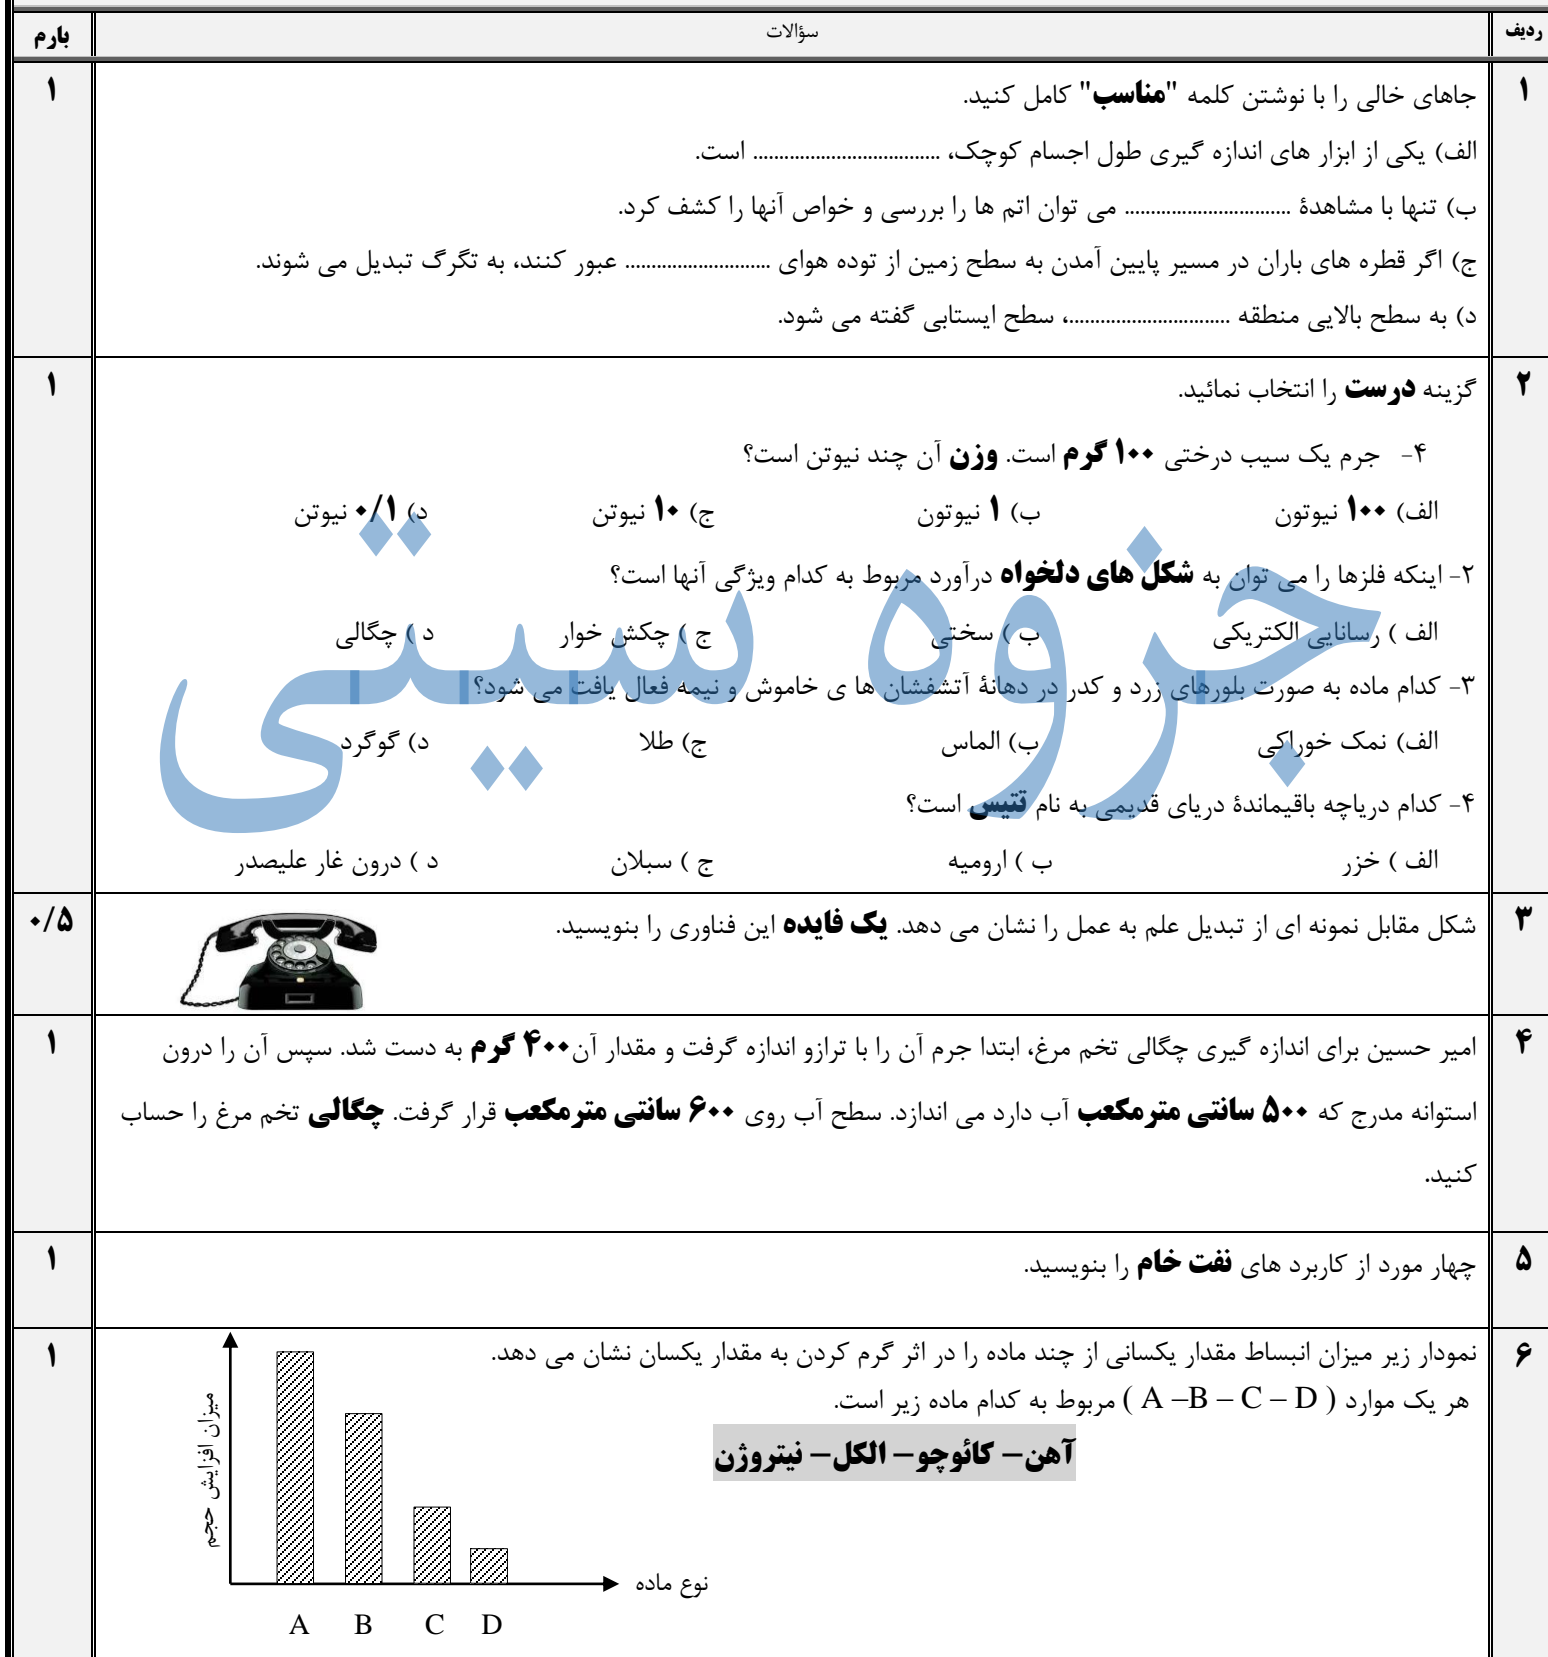 ردیف سؤالات بارم
۱ جاهای خالی را با نوشتن کلمه "مناسب" کامل کنید. ۱
الف) یکی از ابزار های اندازه گیری طول اجسام کوچک، .................................... است.
ب) تنها با مشاهدهٔ ................................ می توان اتم ها را بررسی و خواص آنها را کشف کرد.
ج) اگر قطره های باران در مسیر پایین آمدن به سطح زمین از توده هوای ............................ عبور کنند، به تگرگ تبدیل می شوند.
د) به سطح بالایی منطقه ...............................، سطح ایستابی گفته می شود.
۲ گزینه درست را انتخاب نمائید. ۱
۴- جرم یک سیب درختی ۱۰۰ گرم است. وزن آن چند نیوتن است؟
الف) ۱۰۰ نیوتون ب) ۱ نیوتون ج) ۱۰ نیوتن د) ۰/۱ نیوتن
۲- اینکه فلزها را می توان به شکل های دلخواه درآورد مربوط به کدام ویژگی آنها است؟
الف ) رسانایی الکتریکی ب ) سختی ج ) چکش خوار د ) چگالی
۳- کدام ماده به صورت بلورهای زرد و کدر در دهانهٔ آتشفشان ها ی خاموش و نیمه فعال یافت می شود؟
الف) نمک خوراکی ب) الماس ج) طلا د) گوگرد
۴- کدام دریاچه باقیماندهٔ دریای قدیمی به نام تتیس است؟
الف ) خزر ب ) ارومیه ج ) سبلان د ) درون غار علیصدر
جزوه سیتی
۳ شکل مقابل نمونه ای از تبدیل علم به عمل را نشان می دهد. یک فایده این فناوری را بنویسید. ۰/۵
۴ امیر حسین برای اندازه گیری چگالی تخم مرغ، ابتدا جرم آن را با ترازو اندازه گرفت و مقدار آن۴۰۰ گرم به دست شد. سپس آن را درون ۱
استوانه مدرج که ۵۰۰ سانتی مترمکعب آب دارد می اندازد. سطح آب روی ۶۰۰ سانتی مترمکعب قرار گرفت. چگالی تخم مرغ را حساب
کنید.
۵ چهار مورد از کاربرد های نفت خام را بنویسید. ۱
۶ نمودار زیر میزان انبساط مقدار یکسانی از چند ماده را در اثر گرم کردن به مقدار یکسان نشان می دهد. ۱
هر یک موارد ( A –B – C – D ) مربوط به کدام ماده زیر است.
آهن– کائوچو– الکل– نیتروژن
میزان افزایش حجم
نوع ماده
A B C D